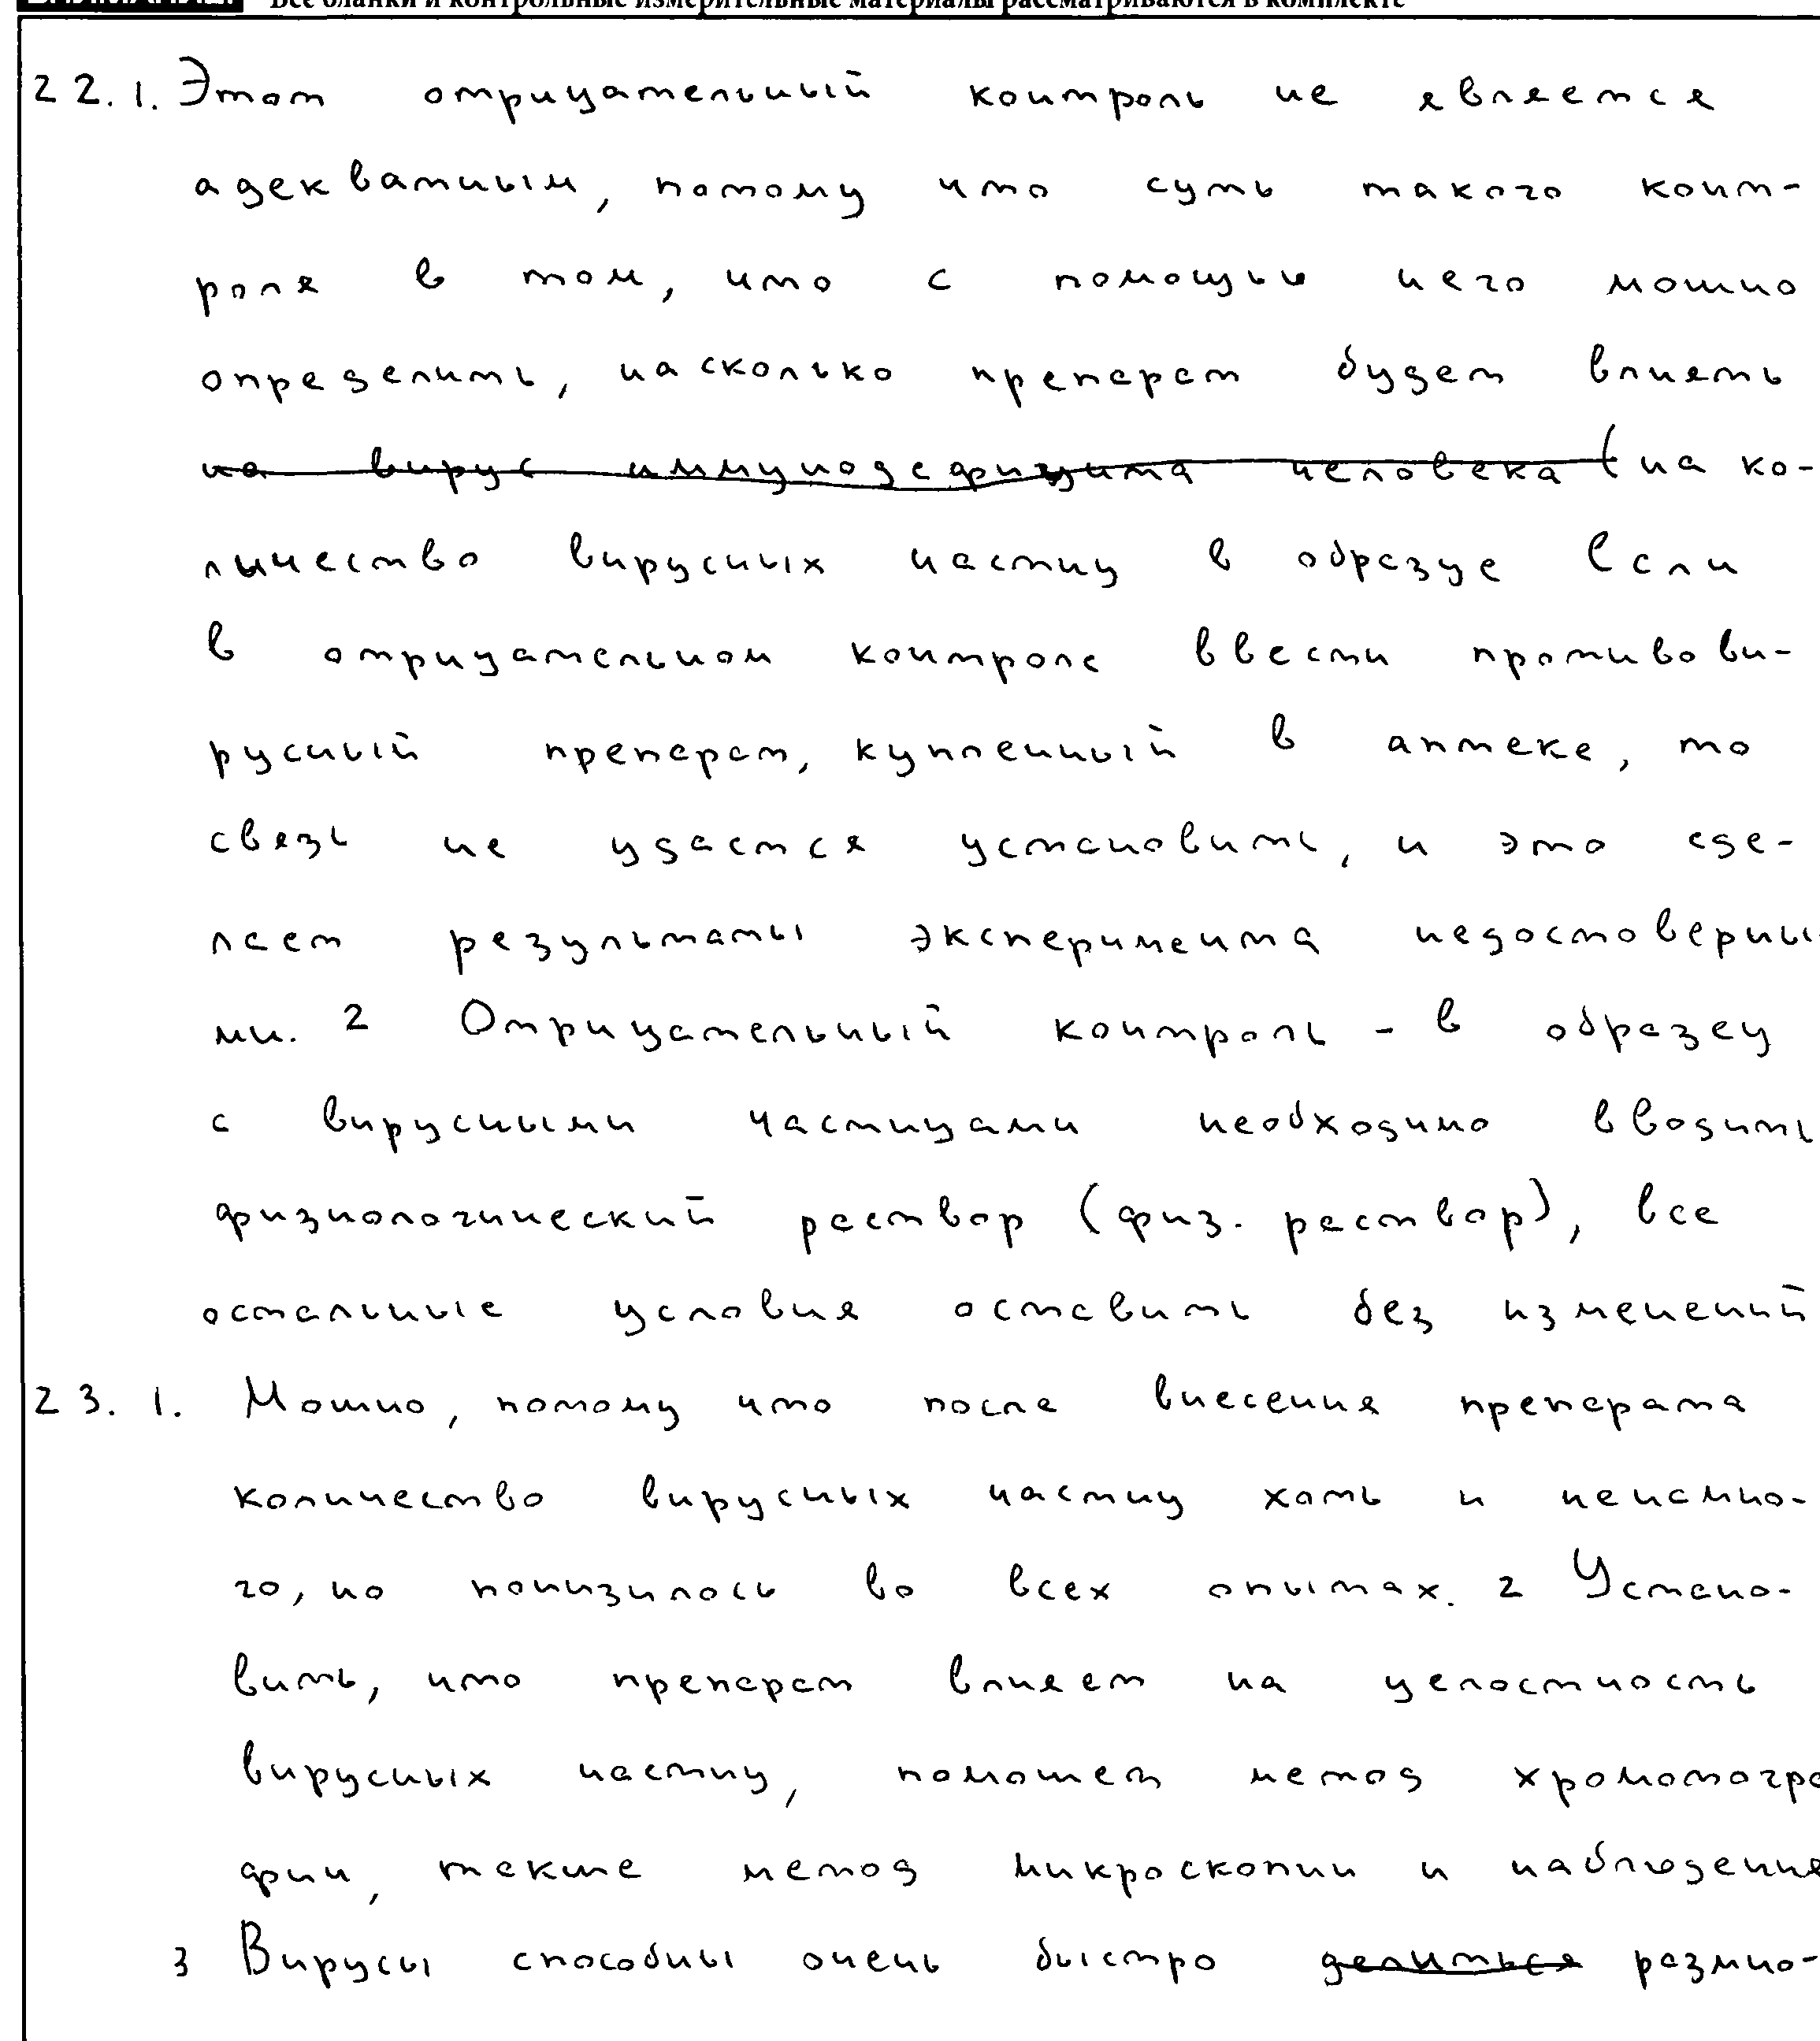 Все бланки и контрольные измерительные материалы рассматриваются в комплекте
22.1. Этот отрицательный контроль не является
адекватным, потому что суть такого конт-
роля в том, что с помощью него можно
определить, насколько препарат будет влиять
на вирус иммунодефицита человека (на ко-
личество вирусных частиц в образце Если
в отрицательном контроле ввести противови-
русный препарат, купленный в аптеке, то
связь не удастся установить, и это сде-
лает результаты эксперимента недостоверны-
ми. 2 Отрицательный контроль - в образец
с вирусными частицами необходимо вводить
физиологический раствор (физ. раствор), все
остальные условия оставить без изменений
23. 1. Можно, потому что после внесения препарата
количество вирусных частиц хоть и ненамно-
го, но понизилось во всех опытах. 2 Устано-
вить, что препарат влияет на целостность
вирусных частиц, поможет метод хромотогра
фии, также метод микроскопии и наблюдения
3 Вирусы способны очень быстро делиться размно-